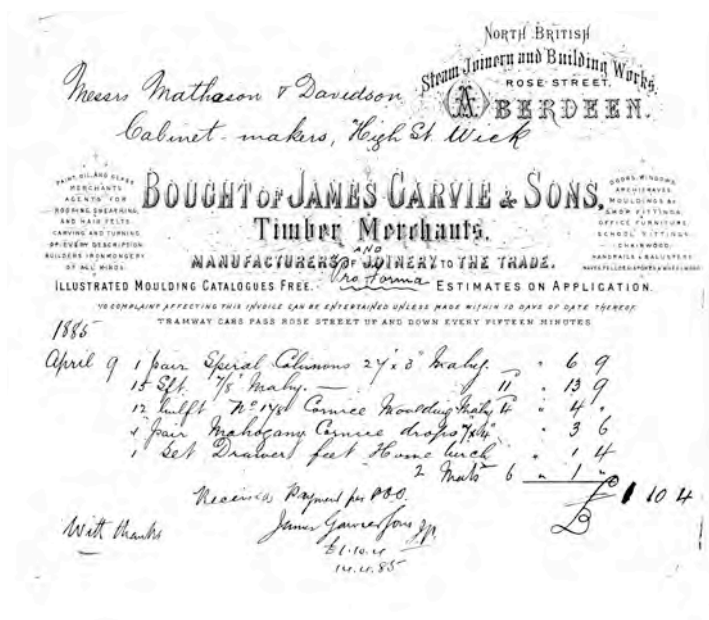 NORTH BRITISH
Steam Joinery and Building Works,
ROSE STREET,
ABERDEEN.
Messrs Mathason & Davidson
Cabinet-makers, High St. Wick
PAINT, OIL, AND GLASS
MERCHANTS
AGENTS FOR
ROOFING, SHEATHING,
AND HAIR FELTS
CARVING AND TURNING
OF EVERY DESCRIPTION
BUILDERS IRONMONGERY
OF ALL KINDS.
BOUGHT OF JAMES GARVIE & SONS,
Timber Merchants,
AND
MANUFACTURERS OF JOINERY TO THE TRADE.
DOORS, WINDOWS
ARCHITRAVES
MOULDINGS &c
SHOP FITTINGS
OFFICE FURNITURE,
SCHOOL FITTINGS
CHAIRWOOD
HANDRAILS & BALUSTERS
ILLUSTRATED MOULDING CATALOGUES FREE. Pro Forma ESTIMATES ON APPLICATION.
NO COMPLAINT AFFECTING THIS INVOICE CAN BE ENTERTAINED UNLESS MADE WITHIN 10 DAYS OF DATE THEREOF.
TRAMWAY CARS PASS ROSE STREET UP AND DOWN EVERY FIFTEEN MINUTES
1885
April 9 1 pair Spiral Columns 24" x 3" Mahy. " 6 9
15 Sft. 7/8" Mahy. — 11 " 13 9
12 linlft No 178 Cornice Moulding Mahy 4 " 4 "
1 pair Mahogany Cornice drops 7"x4" " 3 6
1 Set Drawer feet Home birch " 1 4
2 Mats 6 " 1 "
£1 10 4
Received Payment per POO.
With thanks
James Garvie & Sons
£1.10.4
14.4.85